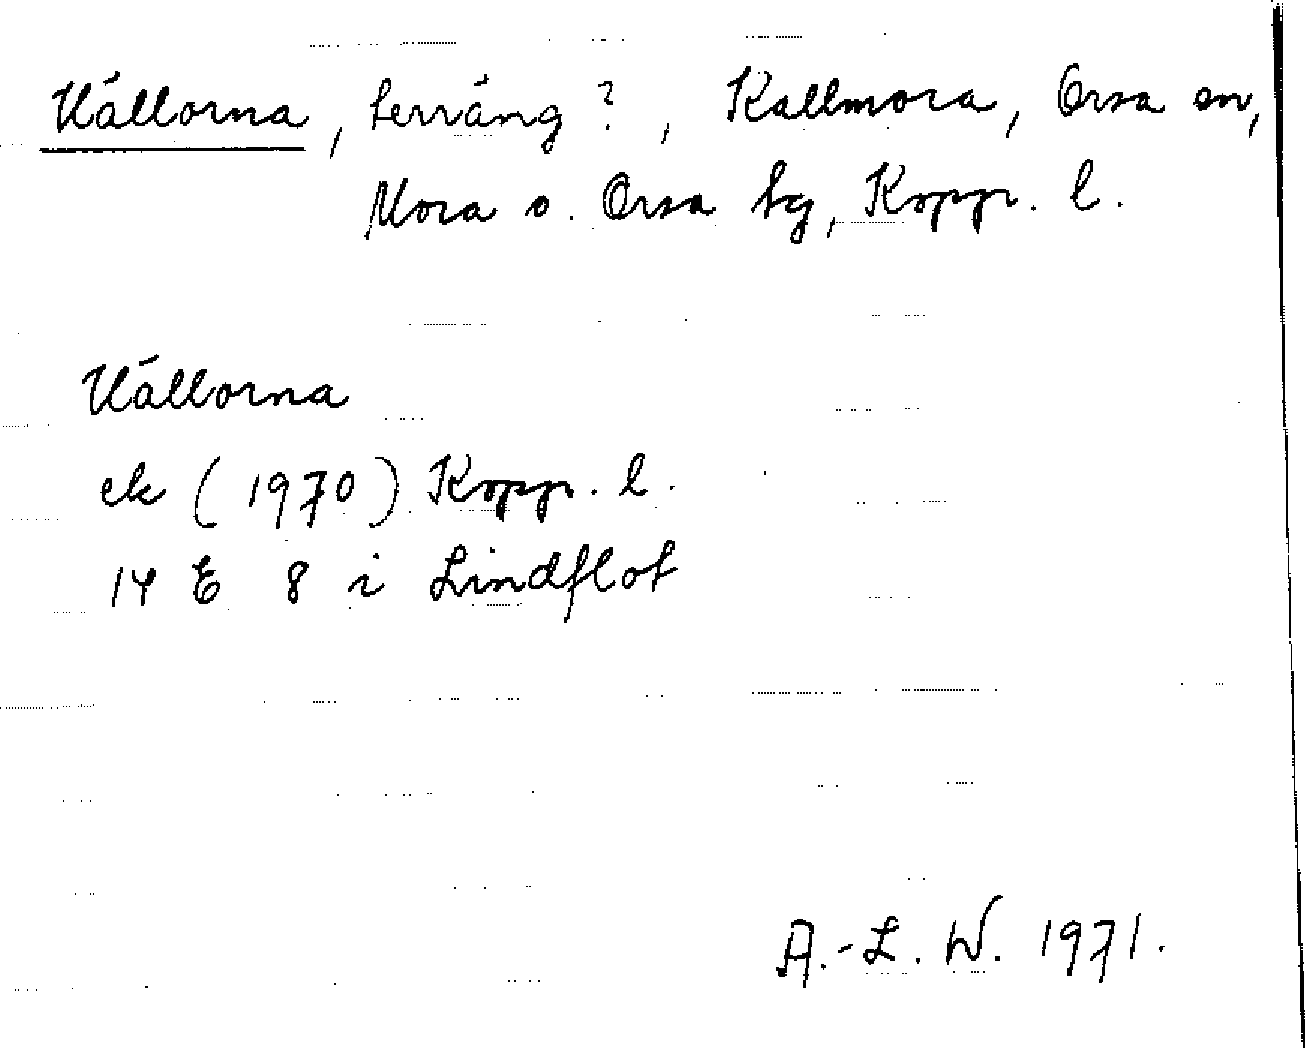 Källorna, terräng?, Kallmora, Orsa sn,
Mora o. Orsa tg, Kopp. l.
Källorna
ek (1970) Kopp. l.
14 E 8 i Lindflot
A.-L. W. 1971.